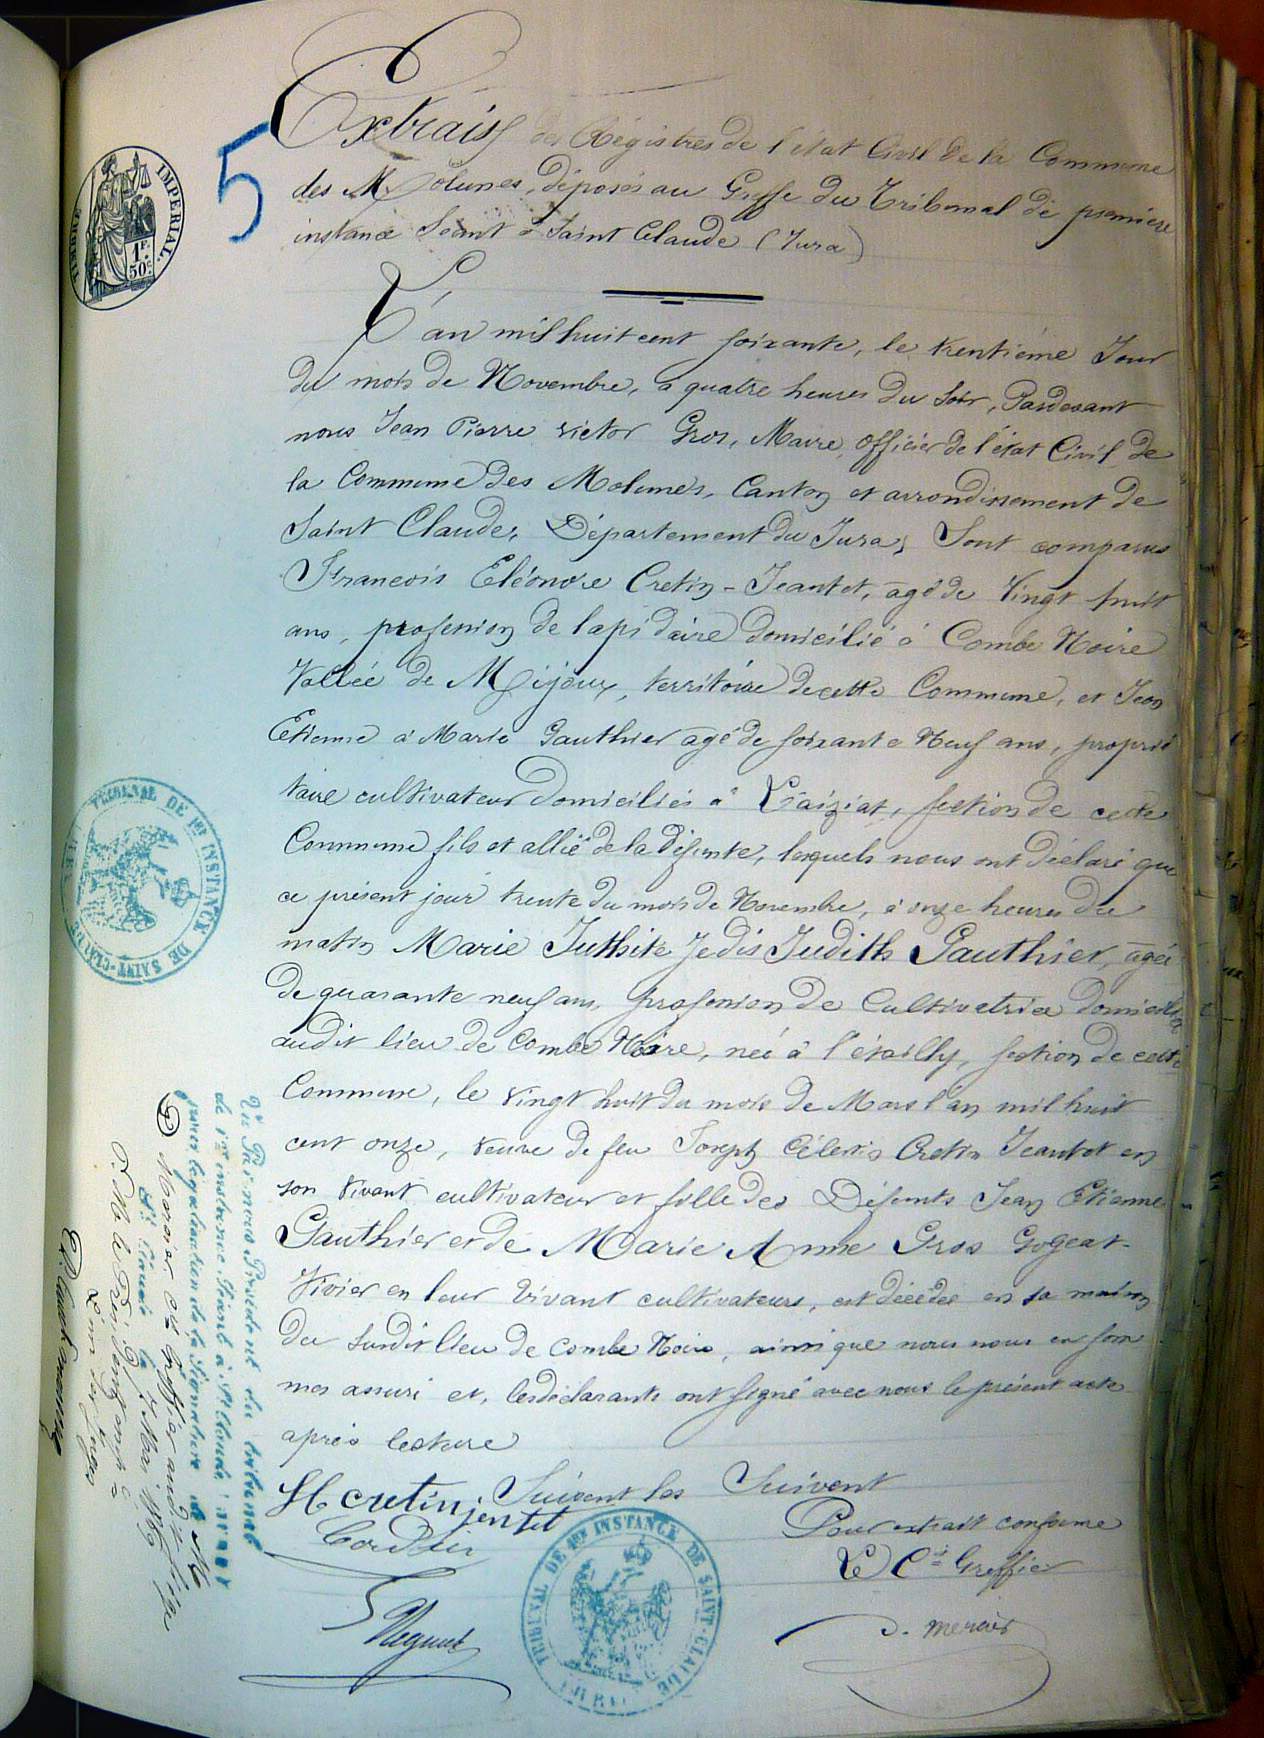 5
TIMBRE IMPERIAL.
1 F.
50 c
Extrait des Régistres de l'état Civil de la Commune
des Molunes, déposés au Greffe du Tribunal de première
instance Séant à Saint Claude (Jura)
L'an mil huit cent soixante, le trentième Jour
du mois de Novembre, à quatre heures du Soir, Pardevant
nous Jean Pierre victor Gros, Maire, officier de l'état Civil de
la Commune des Molunes, Canton et arrondissement de
Saint Claude, Département du Jura, Sont comparus
Francois Eléonore Cretin-Jeantet, agé de Vingt huit
ans, profession de lapidaire domicilié à Combe Noire
Vallée de Mijoux, territoire de cette Commune, et Jean
Etienne à Marie Gauthier agé de soixante Neuf ans, proprié
taire cultivateur domiciliés à Laiziat, section de cette
Commune fils et allié de la défunte, lesquels nous ont déclaré que
ce présent jour trente du mois de Novembre, à onze heures du
matin Marie Juthite Je dis Judith Gauthier, agée
de quarante neuf ans, profession de Cultivatrice domiciliée
audit lieu de Combe Noire, née à l'étailly, section de cette
Commune, le vingt huit du mois de Mars l'an mil huit
cent onze, veuve de feu Joseph Célestin Cretin Jeantet en
son Vivant cultivateur et fille des Défunts Jean Etienne
Gauthier et de Marie Anne Gros Gogeat
Vivier en leur Vivant cultivateurs, est décédée en sa maison
du susdit lieu de Combe Noire, ainsi que nous nous en som
mes assuré et, les déclarants ont signé avec nous le présent acte
après lecture
Suivent les Suivent
H cretin jentet
Cordier
Regnaut
Pour extrait conforme
Le Cis Greffier
J. mercier
TRIBUNAL DE 1ER INSTANCE DE SAINT-CLAUDE
JURA
TRIBUNAL DE 1ER INSTANCE DE SAINT-CLAUDE
JURA
Vu Par nous Président du tribunal
de 1ère instance Séant à St Claude
pour légalisation de la Signature de Mr
D. Mercier Cis Greffier
St Claude le